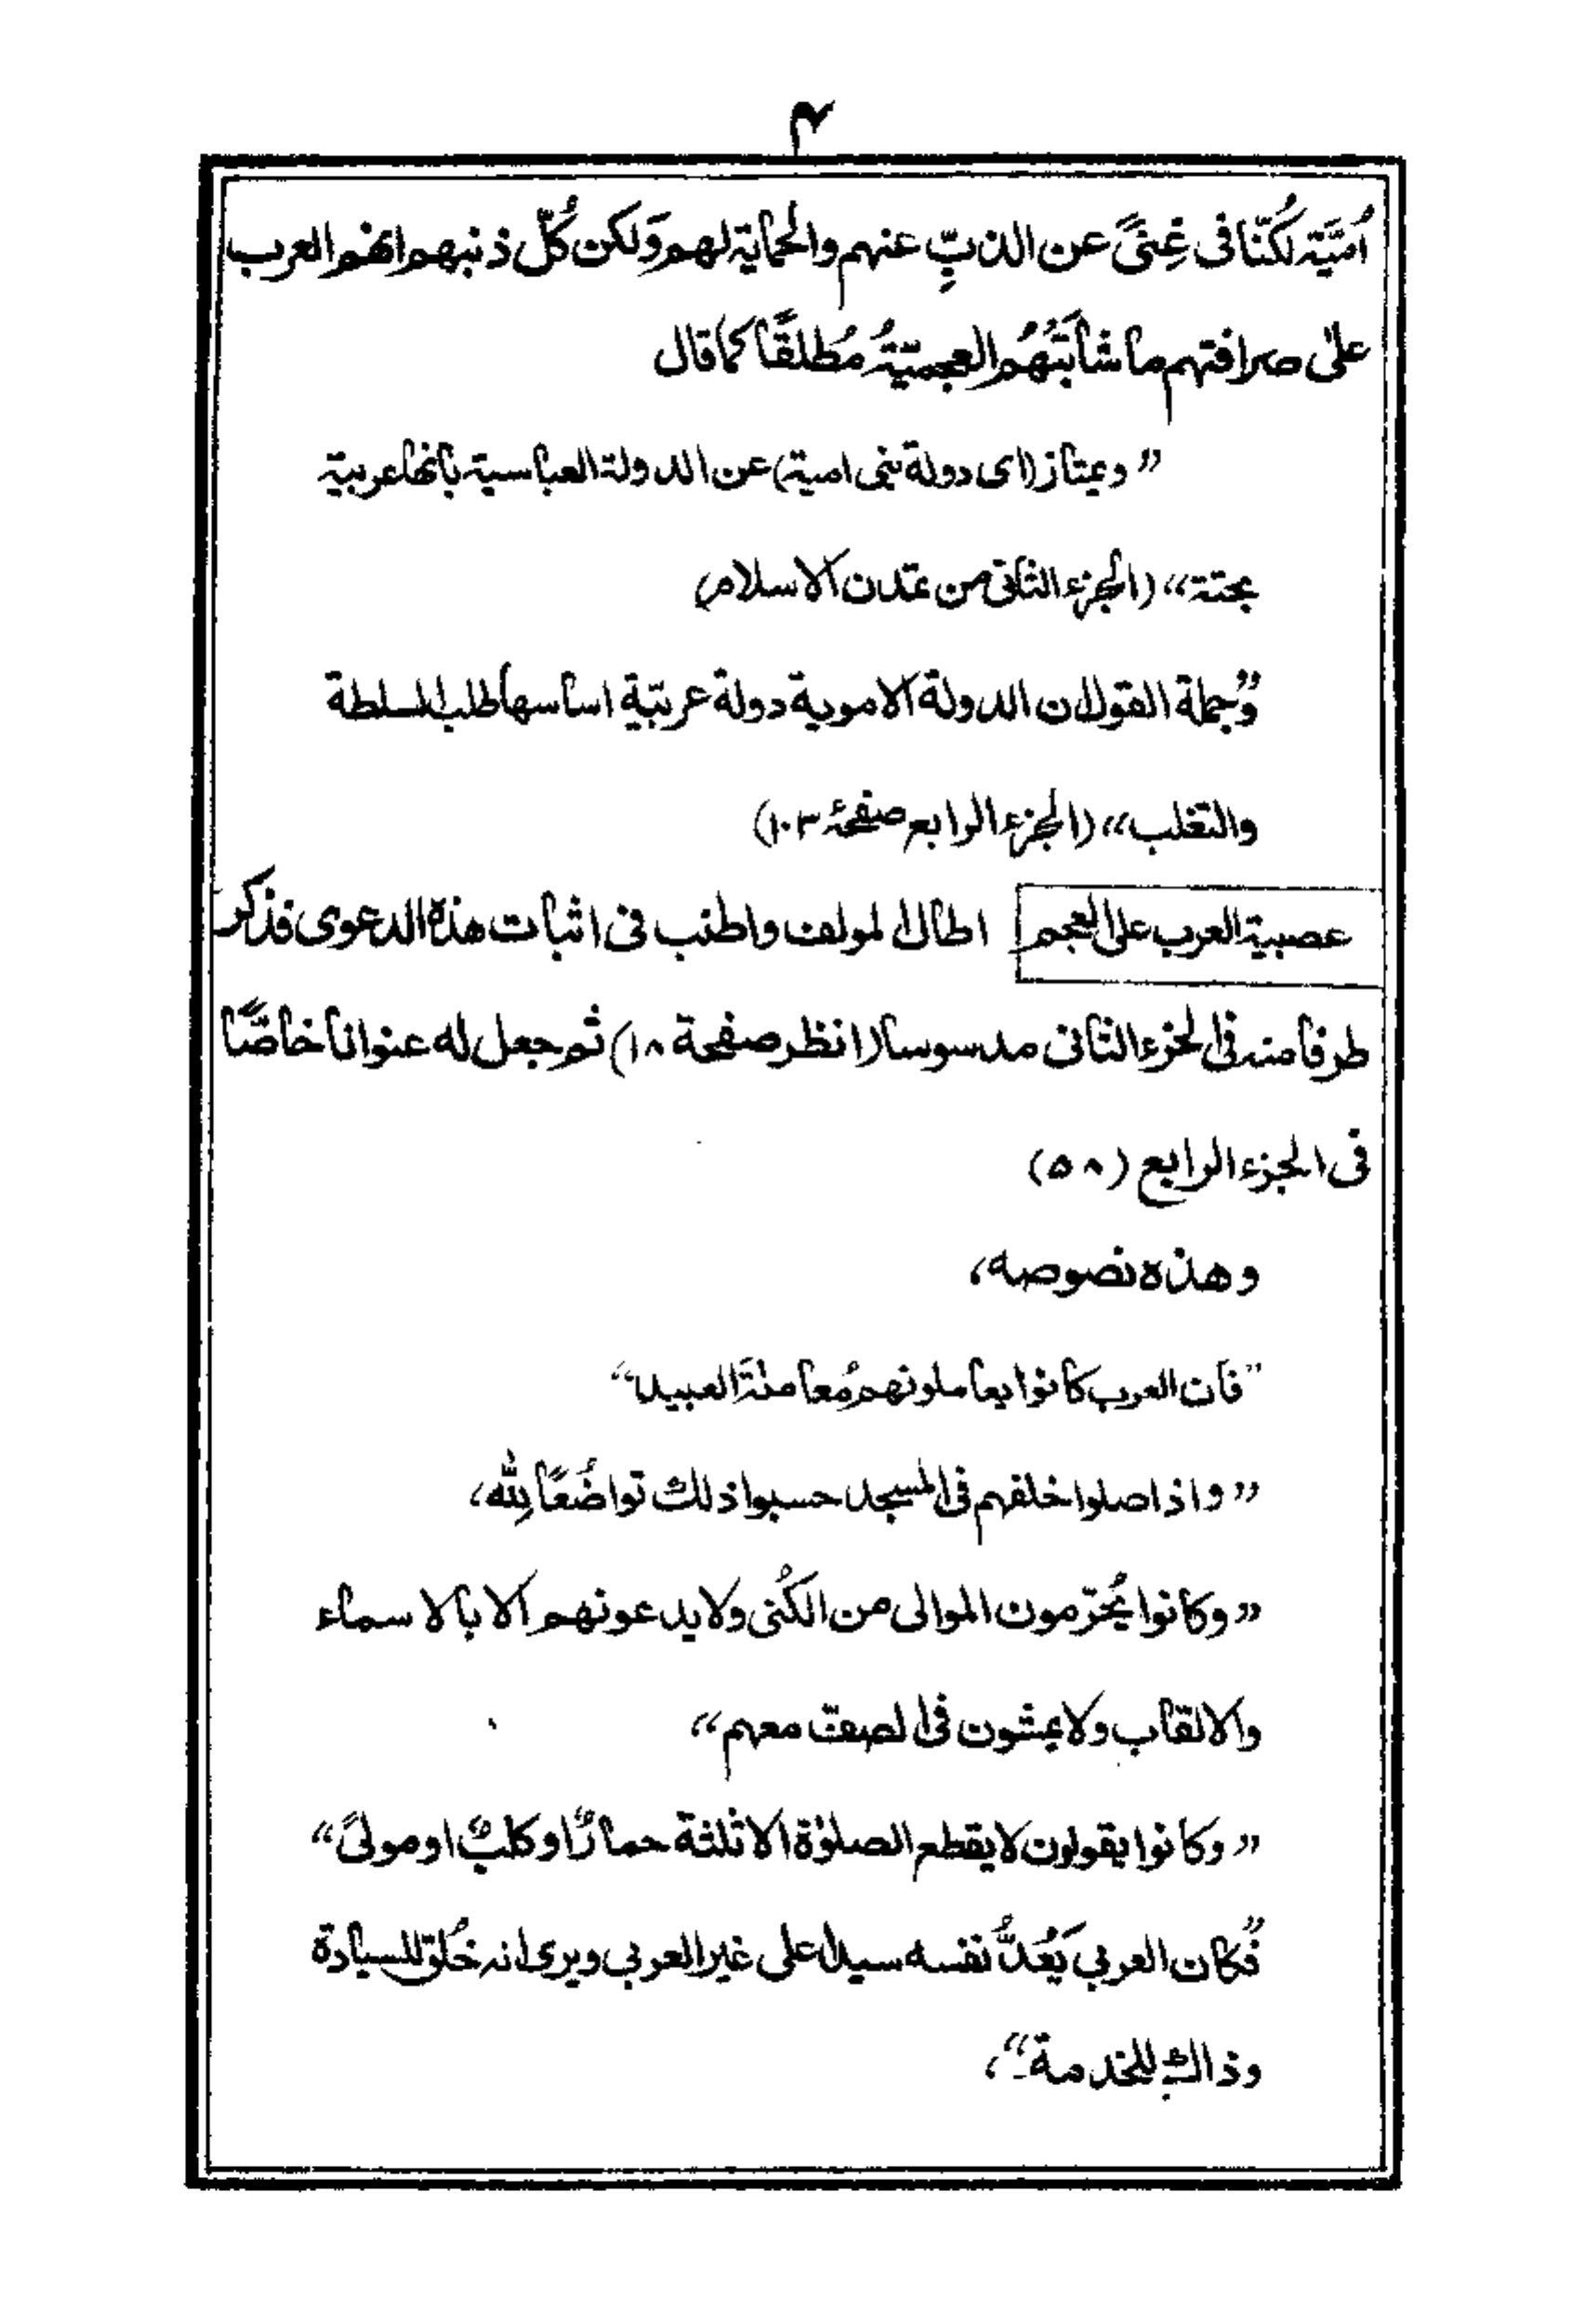 ۴
اُمَيَّة لكُنّا فى غِنىً عن الذبِّ عنهم والحماية لهم وَلكن كُلّ ذنبهم انهم العرب
على صرافتهم ما شابَتْهُم العجميّةُ مُطلقًا كما قال
” ويمتاز (اى دولة بنى امية) عن الدولة العباسية بانها عربية
بحتة“ (الجزء الثانى من تمدن الاسلام)
”وجملة القول ان الدولة الاموية دولة عربيّة اساسها طلب السلطة
والتغلب“ (الجزء الرابع صفحة ۱۰۳)
عصبية العرب على العجم اطال المولف واطنب فى اثبات هذه الدعوى فذكر
طرفا منه فى الجزء الثانى مدسوسا (انظر صفحة ۱۸) ثم جعل له عنوانا خاصًّا
فى الجزء الرابع (۵۸)
وهذه نصوصه،
”فان العرب كانوا يعاملونهم مُعاملةَ العبيد“
”واذا صلوا خلفهم فى المسجد حسبوا ذلك تواضُعًا لِلّٰه،
”وكانوا يُحرّمون الموالى من الكُنى ولا يدعونهم الا بالاسماء
والالقاب ولا يمشون فى الصفّ معهم“
”وكانوا يقولون لا يقطع الصلوٰة الا ثلثة حمارٌ او كلبٌ او مولىً“
”فكان العربي يَعُدُّ نفسه سيدا على غير العربي ويرى انه خُلق للسيادة
وذاك للخدمة“،